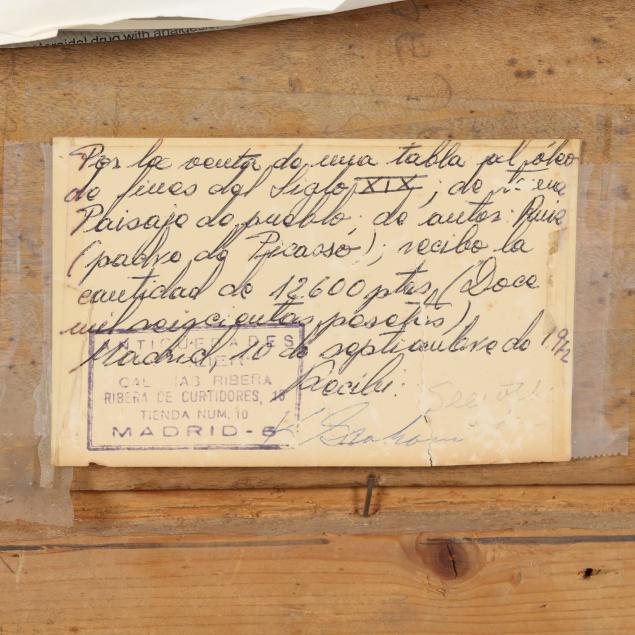 steroidal drug with analgesic
Por la venta de una tabla al óleo
de fines del Siglo XIX; de tema
Paisaje de pueblo; de autor: Ruiz
(padre de Picasso); recibo la
cantidad de 12.600 ptas, (Doce
mil seiscientas pesetas)
Madrid, 10 de septiembre de 1972
Recibi:
ANTIGUEDADES
GALERIAS RIBERA
RIBERA DE CURTIDORES, 15
TIENDA NUM. 10
MADRID-5